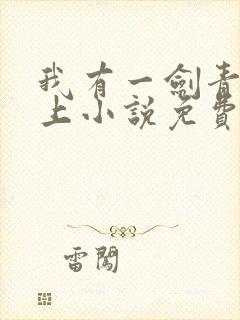 我有一劍青
上小說免費
雷闖